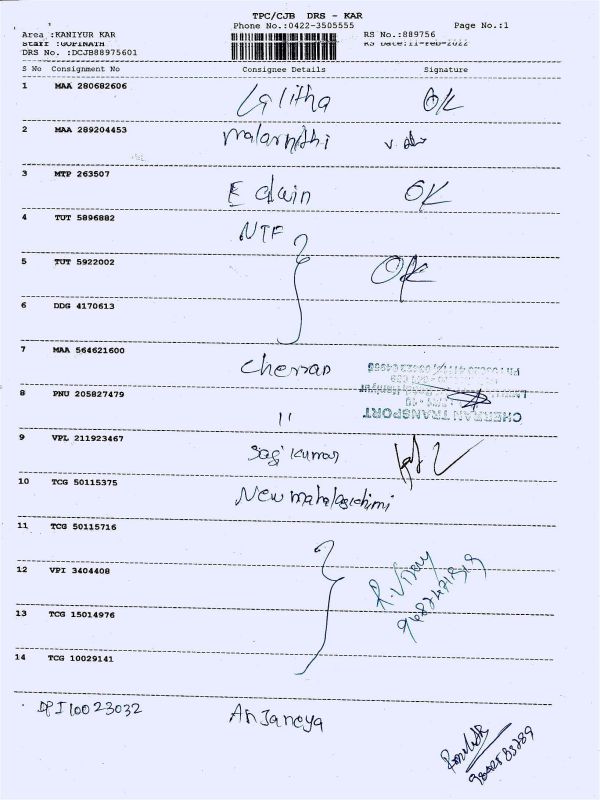 TPC/CJB DRS - KAR
Phone No.:0422-3505555 Page No.:1
Area :KANIYUR KAR RS No.:889756
Staff :GOPINATH RS Date:11-Feb-2022
DRS No. :DCJB88975601
S No Consignment No Consignee Details Signature
1 MAA 280682606 Lalitha OK
2 MAA 289204453 malarnithi
3 MTP 263507 Edwin OK
4 TUT 5896882 NTF
5 TUT 5922002 OK
6 DDG 4170613
7 MAA 564621600 Cherran
8 PNU 205827479 11
CHERRAN TRANSPORT
9 VPL 211923467 Sagi kumar
10 TCG 50115375 New mahalagichimi
11 TCG 50115716
12 VPI 3404408 R. Vijay
13 TCG 15014976
14 TCG 10029141
DPI 10023032 Anjaneya